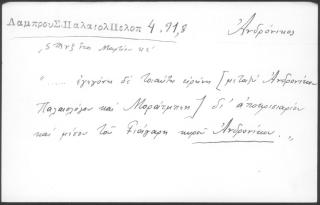 Λαμπρου Σ. Παλαιολ Πελοπ 4.91,8
Ἀνδρόνικος
Μαρτίου κε´
"..... ἐγεγόνει δὲ τοιαύτη εἰρήνη [μεταξὺ Ἀνδρονίκου
Παλαιολόγου καὶ Μοράτμπεη] δι' ἀποκρισιαρίου
καὶ μέσου τοῦ κυροῦ Ἀνδρονίκου. "